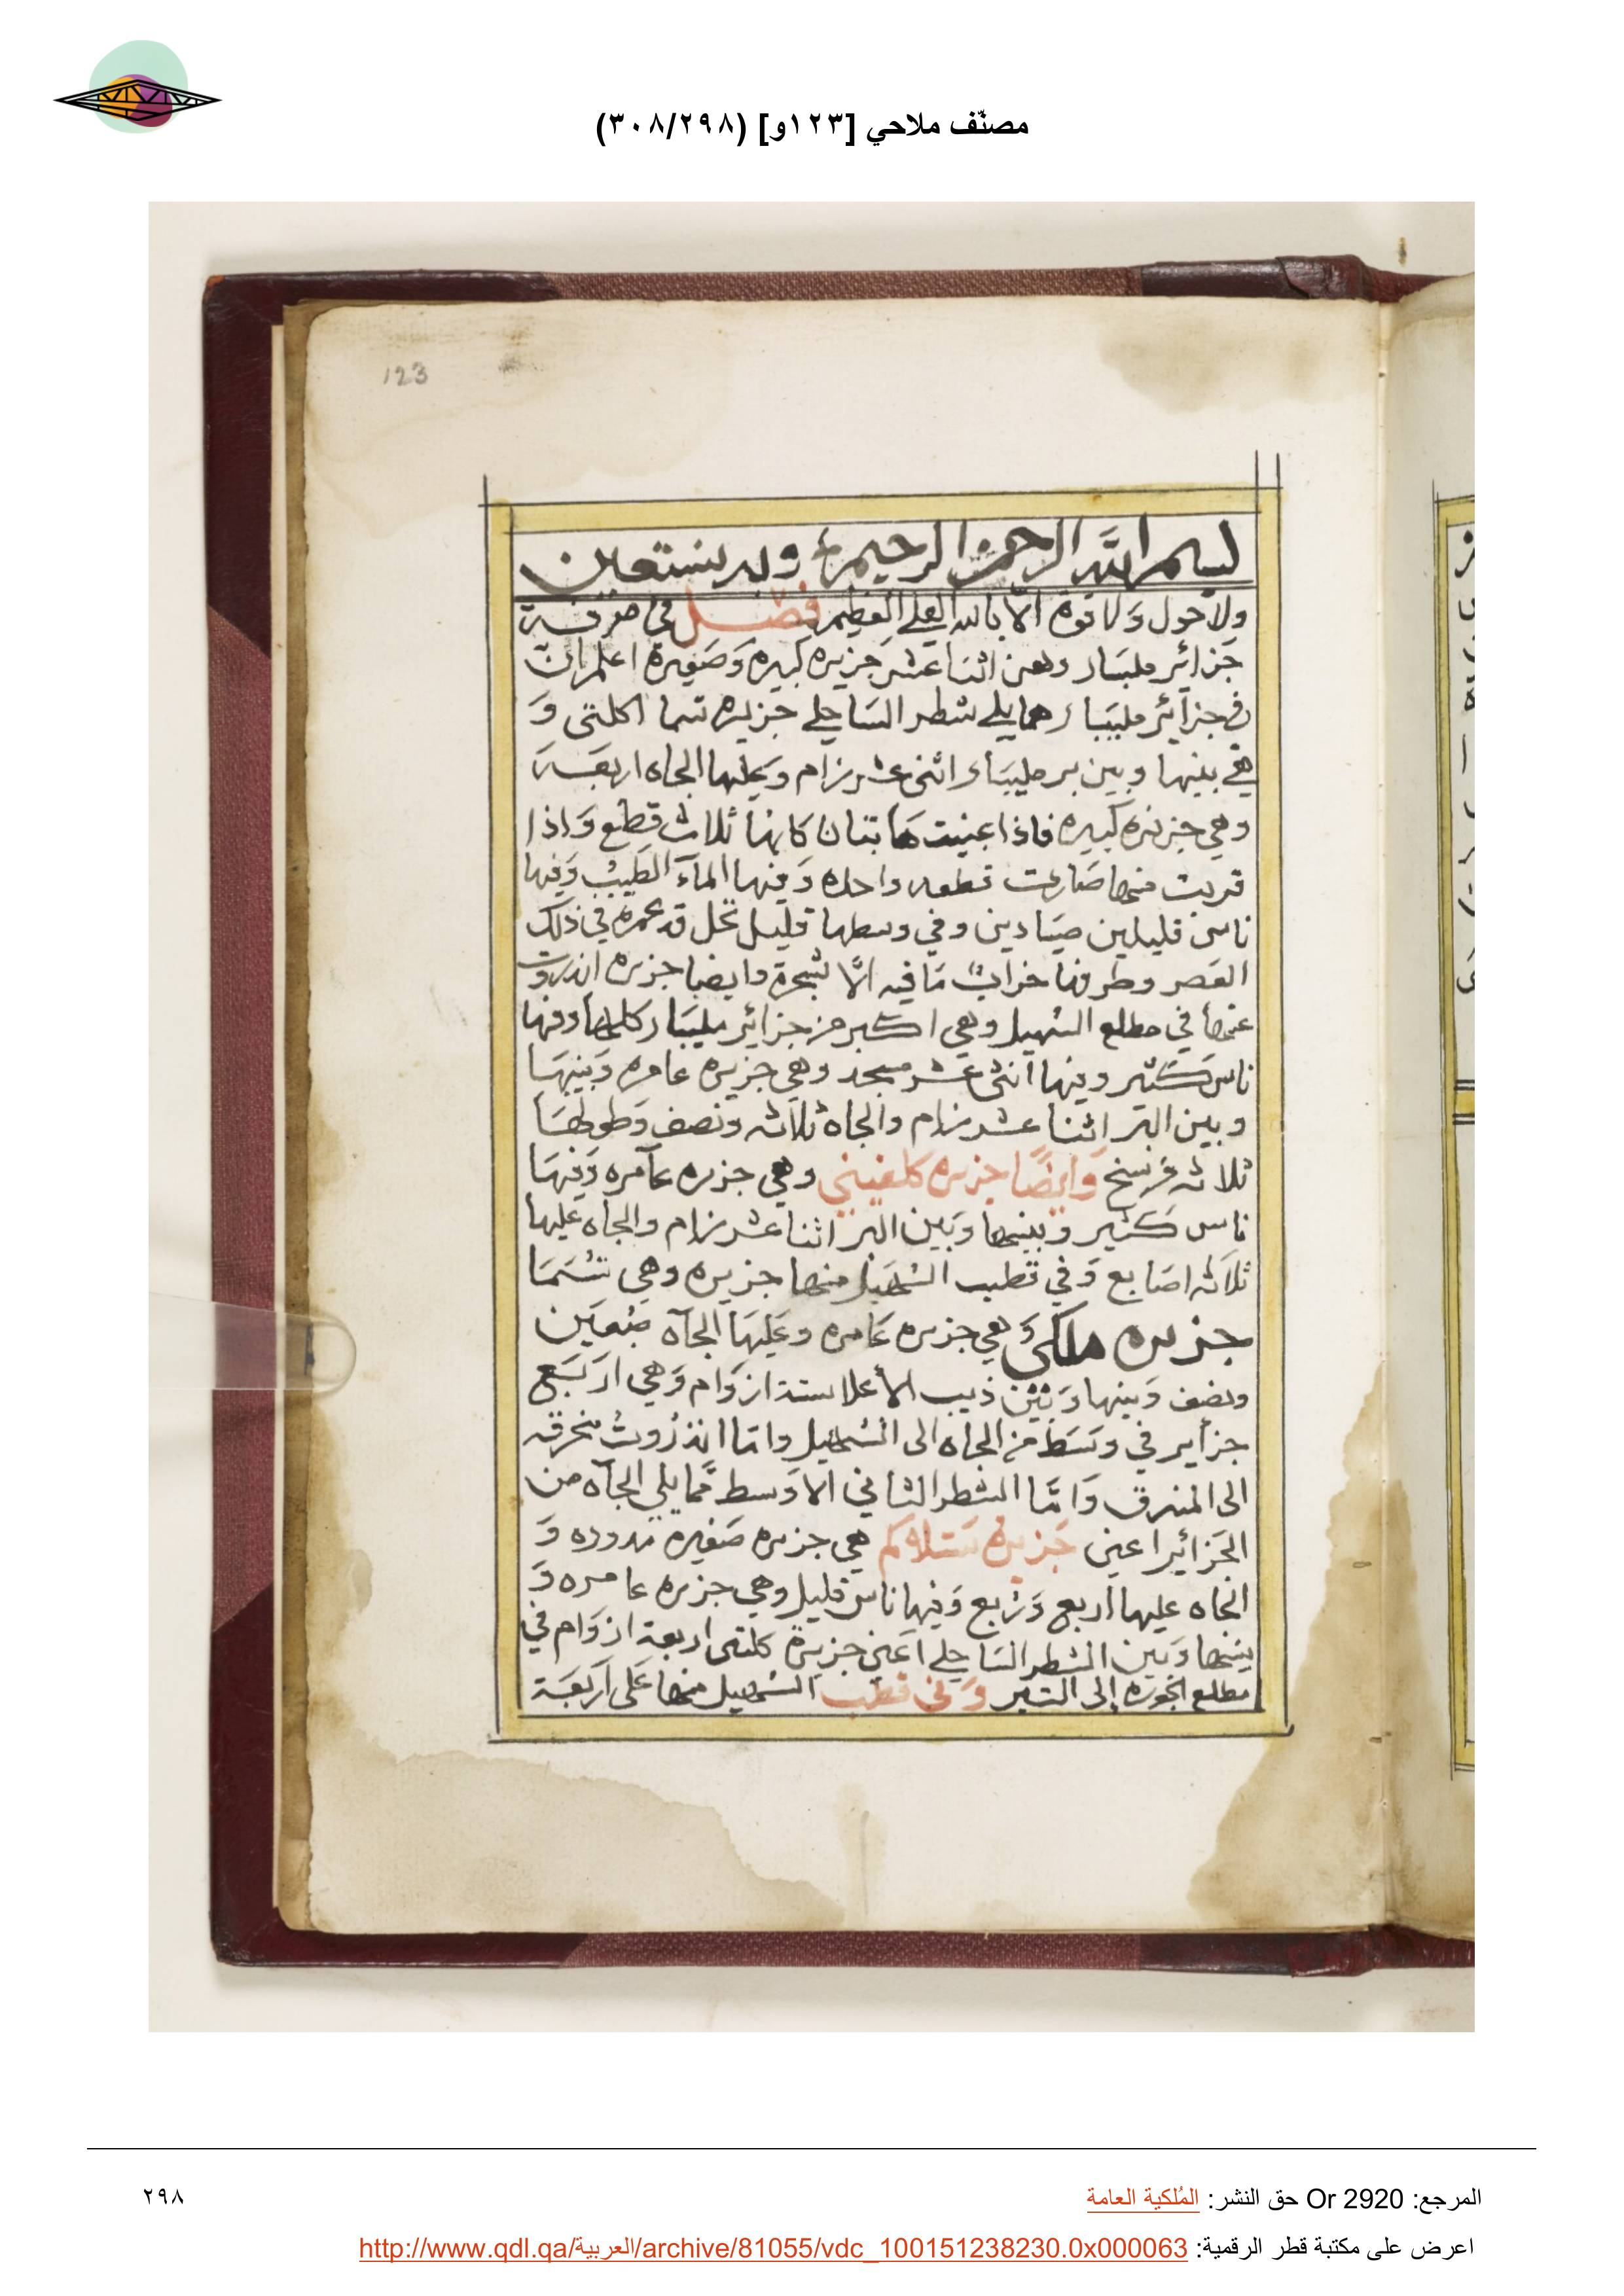 مصنّف ملاحي [١٢٣و] (٣٠٨/٢٩٨)
123
بسم الله الرحمن الرحيم وبه نستعين
ولا حول ولا قوة الا بالله العلي العظيم فصل في معرفة
جزائر مليبار وهن اثنا عشر جزيره كبيره وصغيرة اعلم ان
في جزائر مليبار مما يلي شطر الساحلي جزيره تسما اكلتي و
هي بينها وبين بر مليبار اثنى عشر زام وعليها الجاه اربعة
وهي جزيره كبيره فاذا عنيت ها بتنان كانها ثلاث قطع واذا
قربت منها صارت قطعه واحده وفيها الماء الطيب وفيها
ناس قليلين صيادين وفي وسطها قليل نخل قد عمره في ذلك
العصر وطرفها خراب ما فيه الا شجرة وايضا جزيره اندروت
عنها في مطلع السهيل وهي اكبر من جزائر مليبار كلها وفيها
ناس كثير وفيها اثنى عشر مسجد وهي جزيره عامره وبينها
وبين البر اثنا عشر زام والجاه ثلاثه ونصف وطولها
ثلاثه فرسخ وايضا جزيره كلفيني وهي جزيره عامره وفيها
ناس كثير وبينها وبين البر اثنا عشر زام والجاه عليها
ثلاثه اصابع وفي قطب السهيل منها جزيره وهي تسما
جزيره ملكي وهي جزيره عامره وعليها الجاه ضبعين
ونصف وبينها وبين ذيب الأعلا ستة ازوام وهي اربع
جزاير في وسط من الجاه الى السهيل واما اندروت منحرفه
الى المشرق واما الشطر الثاني الاوسط مما يلي الجاه من
الجزائر اعني جزيرة ستلاكم هي جزيره صغيره مدوره و
الجاه عليها اربع وربع وفيها ناس قليل وهي جزيره عامره و
بينها وبين الشطر الساحلي اعني جزيرة كلتي اربعة ازوام في
مطلع الجوزه إلى التير وفي قطب السهيل منها على اربعة
المرجع: Or 2920 حق النشر: المُلكية العامة
٢٩٨
اعرض على مكتبة قطر الرقمية: http://www.qdl.qa/العربية/archive/81055/vdc_100151238230.0x000063